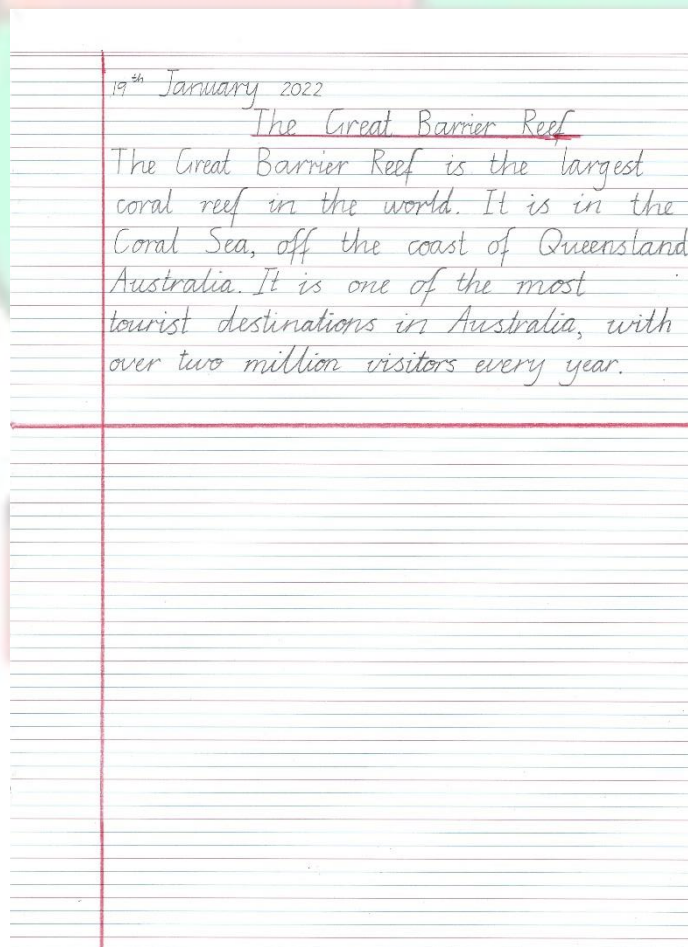 19th January 2022
The Great Barrier Reef
The Great Barrier Reef is the largest
coral reef in the world. It is in the
Coral Sea, off the coast of Queensland
Australia. It is one of the most
tourist destinations in Australia, with
over two million visitors every year.